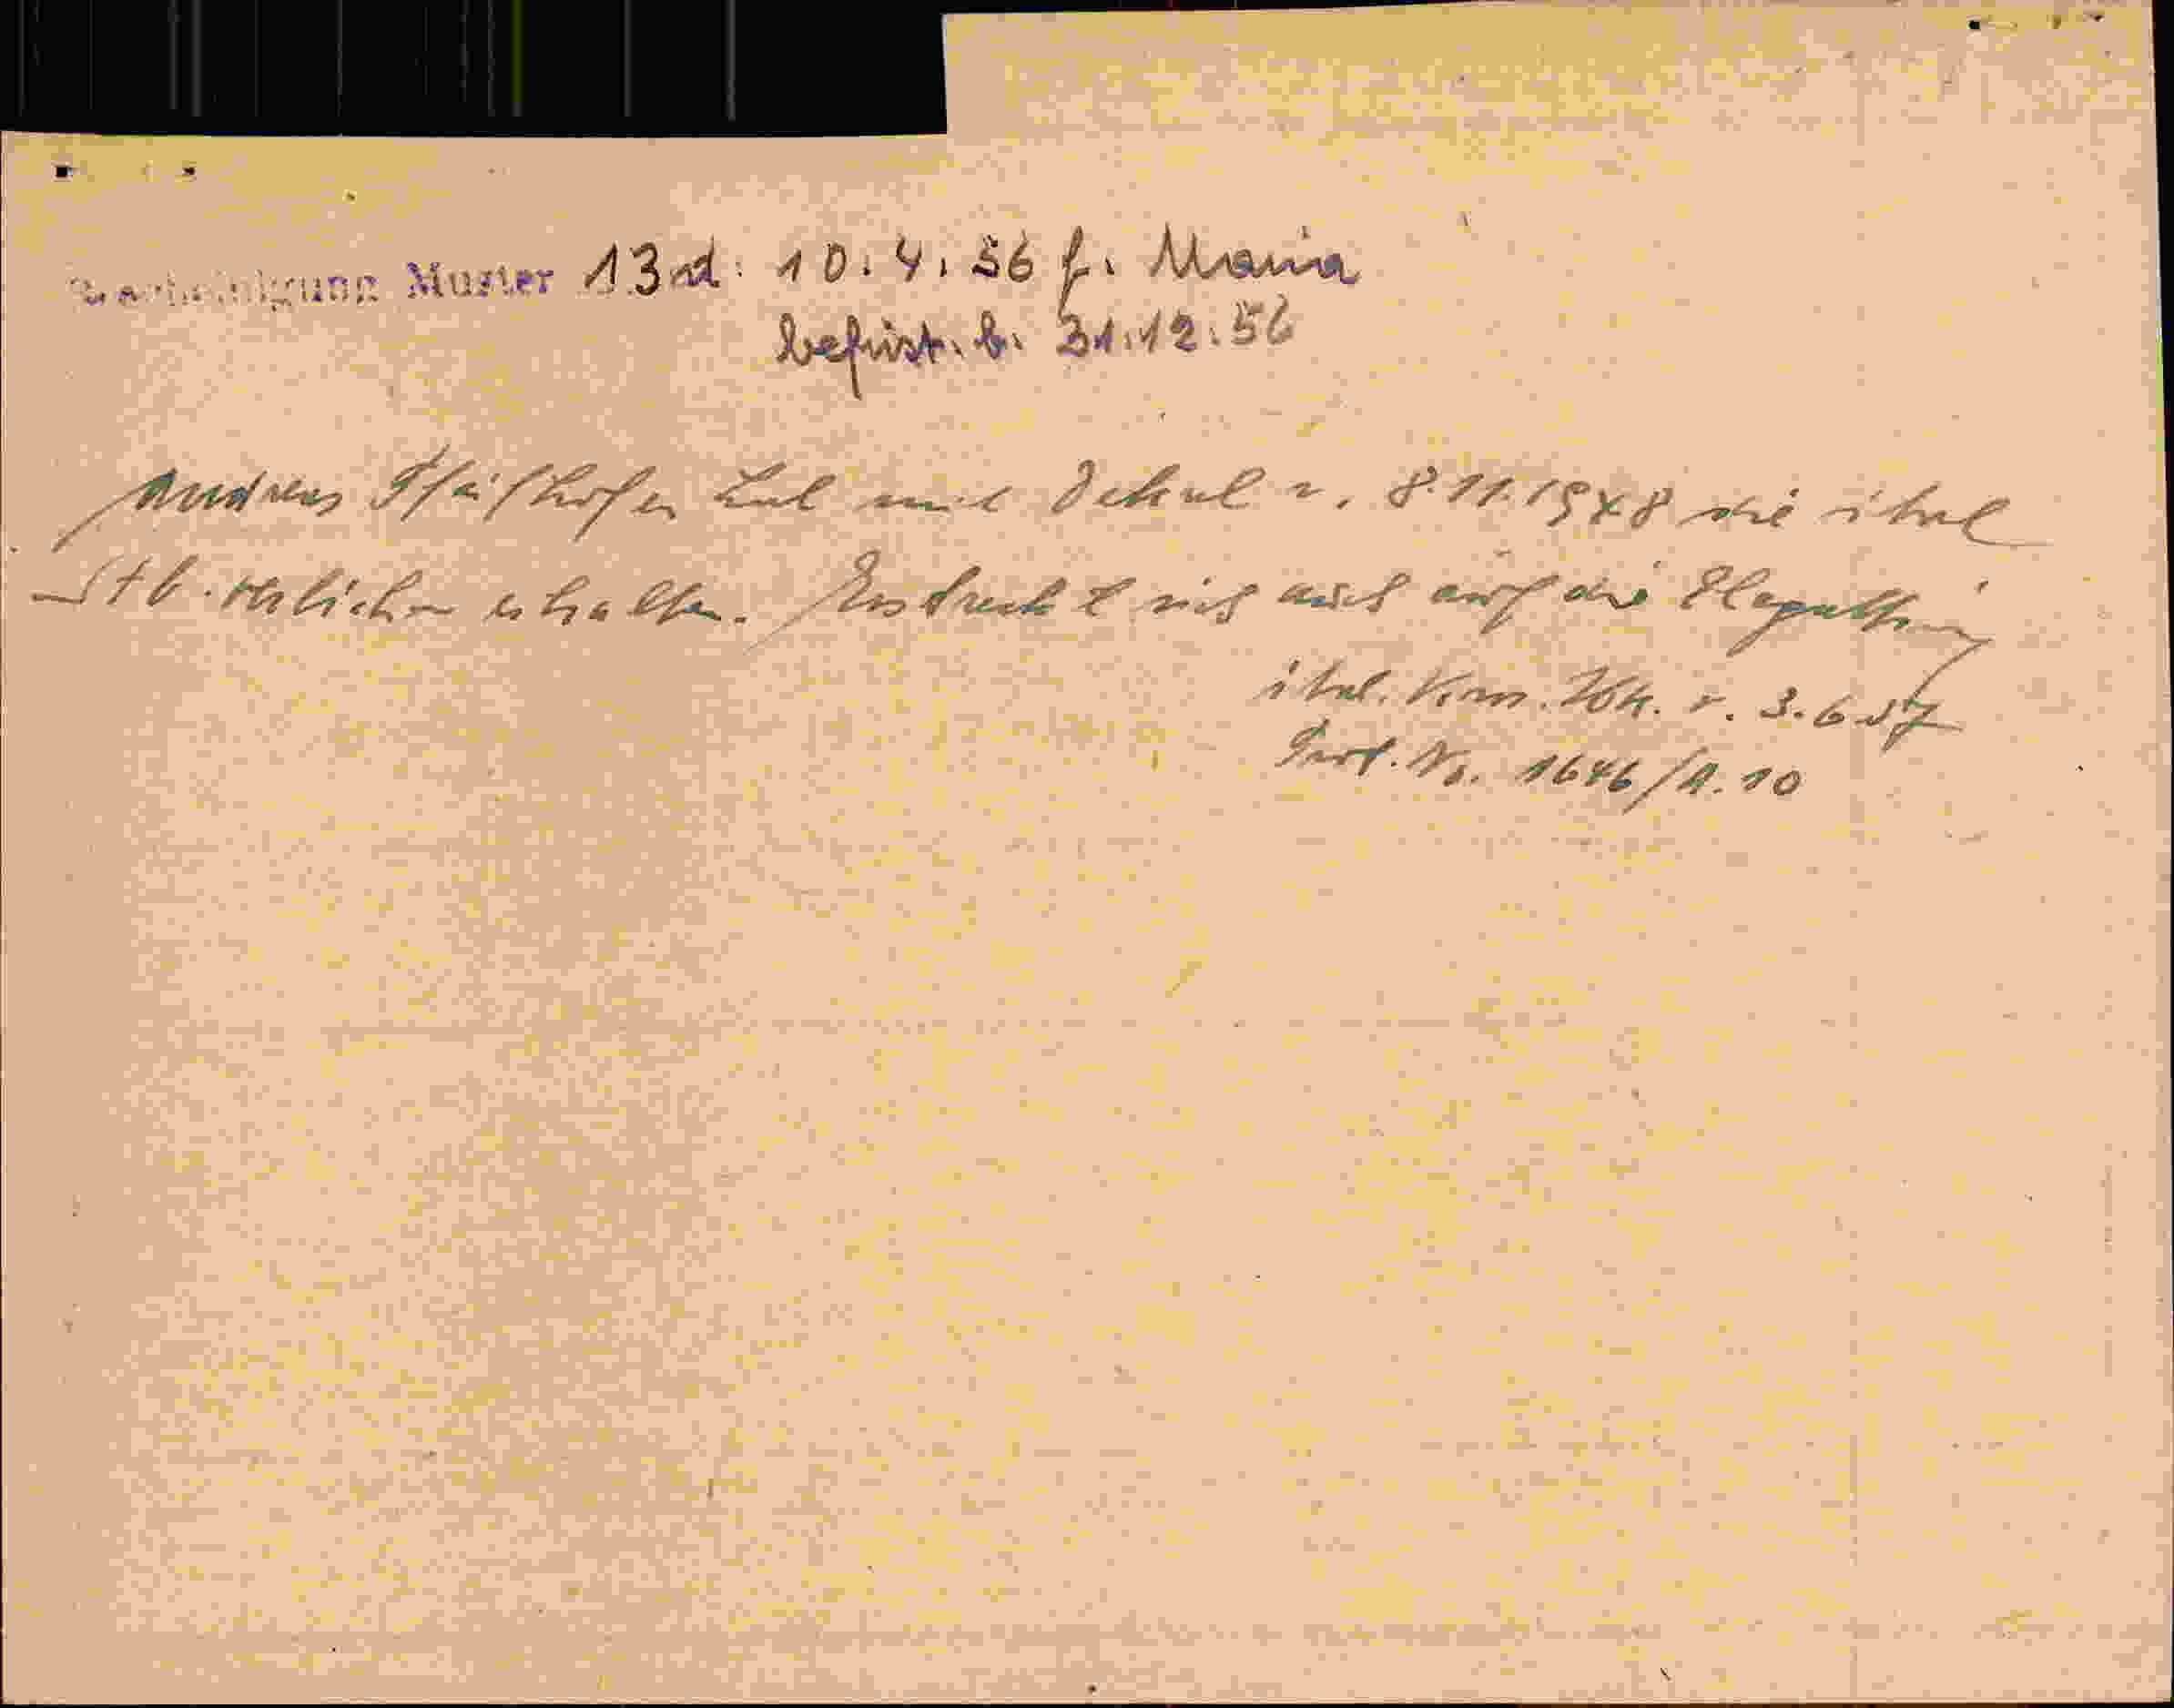 Bescheinigung Muster 13 d. 10.4.56 f. Maria
befrist. b. 31.12.56
Andreas hat mit Dekret v. 8.11.1948 die ital
Stb. verliehen erhalten. Erstreckt sich auch auf die Ehegattin
ital. Kons. v. 3.6 57
Prot. Nr. 1646/A.10